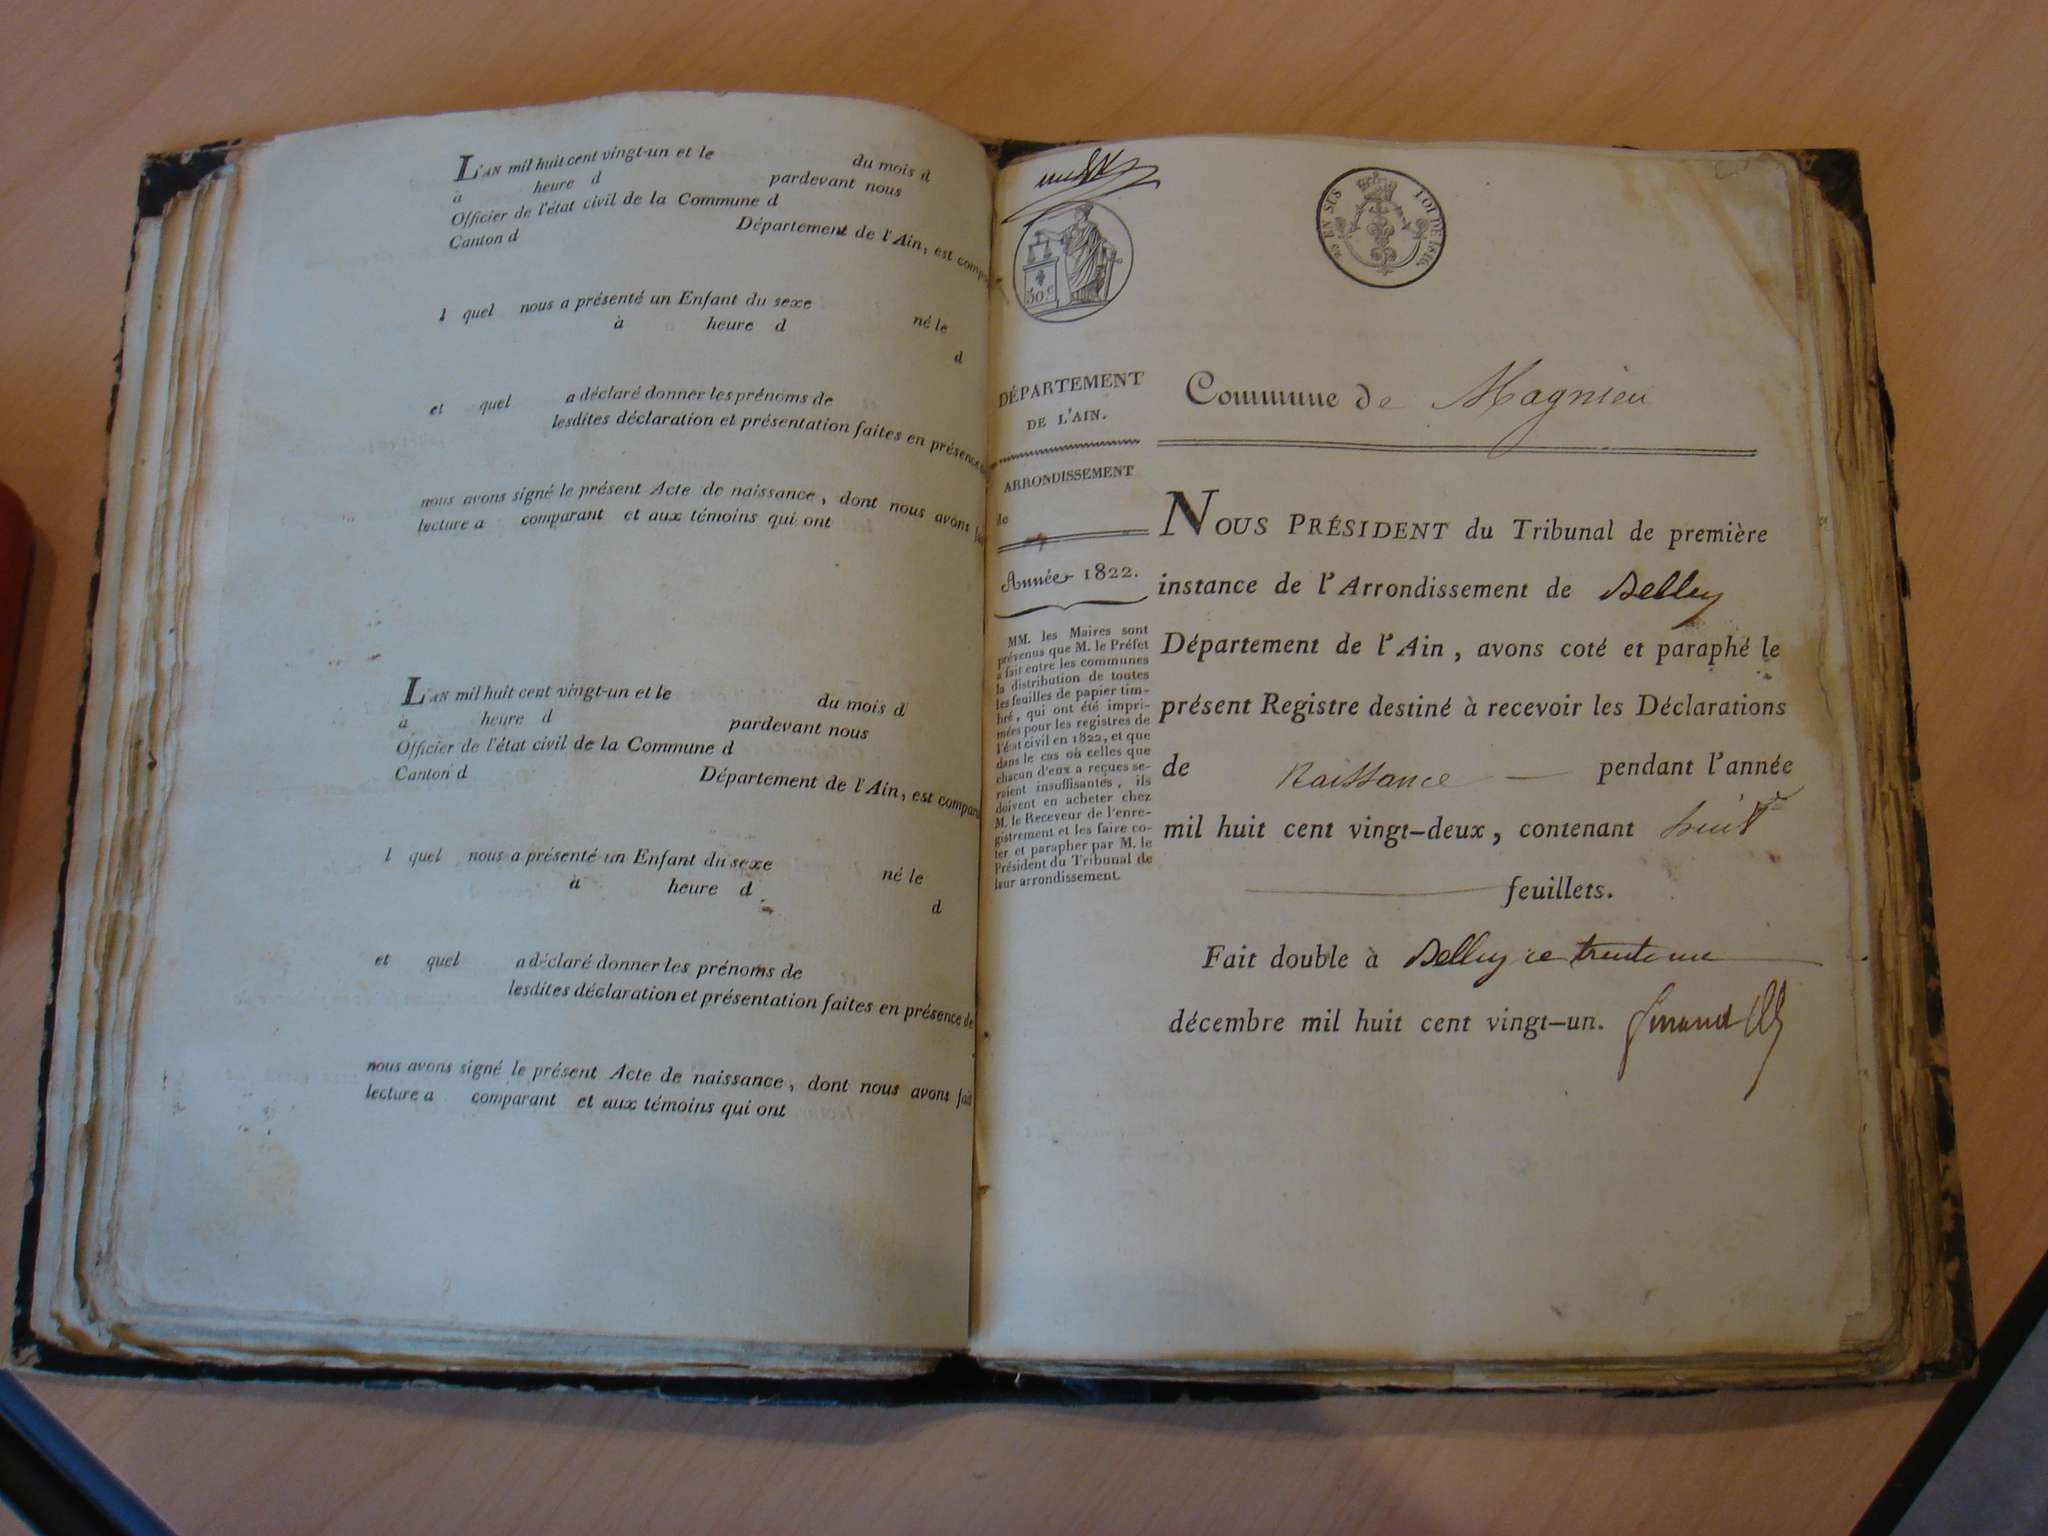 L'AN mil huit cent vingt-un et le du mois d
à heure d pardevant nous
Officier de l'état civil de la Commune d
Canton d Département de l'Ain, est compa
l quel nous a présenté un Enfant du sexe
né le
à heure d
d
et quel a déclaré donner les prénoms de
lesdites déclaration et présentation faites en présence
nous avons signé le présent Acte de naissance, dont nous avons fait
lecture a comparant et aux témoins qui ont
L'AN mil huit cent vingt-un et le du mois d
à heure d pardevant nous
Officier de l'état civil de la Commune d
Canton d Département de l'Ain, est compar
l quel nous a présenté un Enfant du sexe
né le
à heure d
d
et quel a déclaré donner les prénoms de
lesdites déclaration et présentation faites en présence de
nous avons signé le présent Acte de naissance, dont nous avons fait
lecture a comparant et aux témoins qui ont
50 c
EN SUS LOI DE 1816.
DÉPARTEMENT
DE L'AIN.
ARRONDISSEMENT
de
Année 1822.
MM. les Maires sont
prévenus que M. le Préfet
a fait entre les communes
la distribution de toutes
les feuilles de papier tim-
bré, qui ont été impri-
mées pour les registres de
l'état civil en 1822, et que
dans le cas où celles que
chacun d'eux a reçues se-
raient insuffisantes, ils
doivent en acheter chez
M. le Receveur de l'enre-
gistrement et les faire co-
ter et parapher par M. le
Président du Tribunal de
leur arrondissement.
Commune de Magnieu
NOUS PRÉSIDENT du Tribunal de première
instance de l'Arrondissement de Belley
Département de l'Ain, avons coté et paraphé le
présent Registre destiné à recevoir les Déclarations
de Naissance pendant l'année
mil huit cent vingt-deux, contenant huit
feuillets.
Fait double à Belley ce trente un
décembre mil huit cent vingt-un.